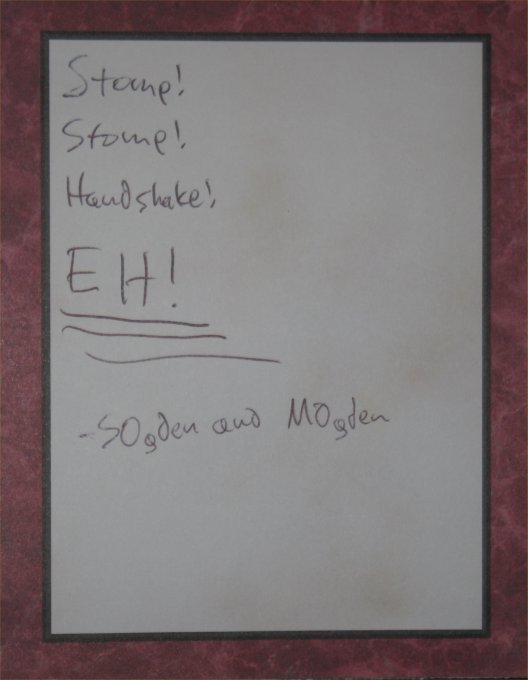 Stomp!
Stomp!
Handshake!
EH!
-SOgden and MOgden